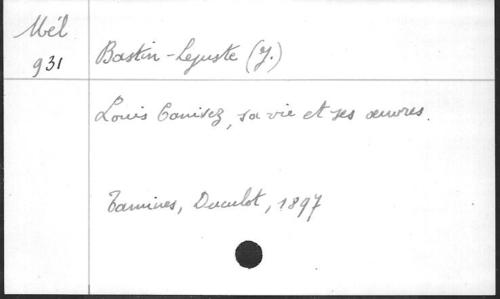 Mél
931
Bastin-Lejuste (J.)
Louis Canivez, sa vie et ses œuvres.
Tamines, Duculot, 1897